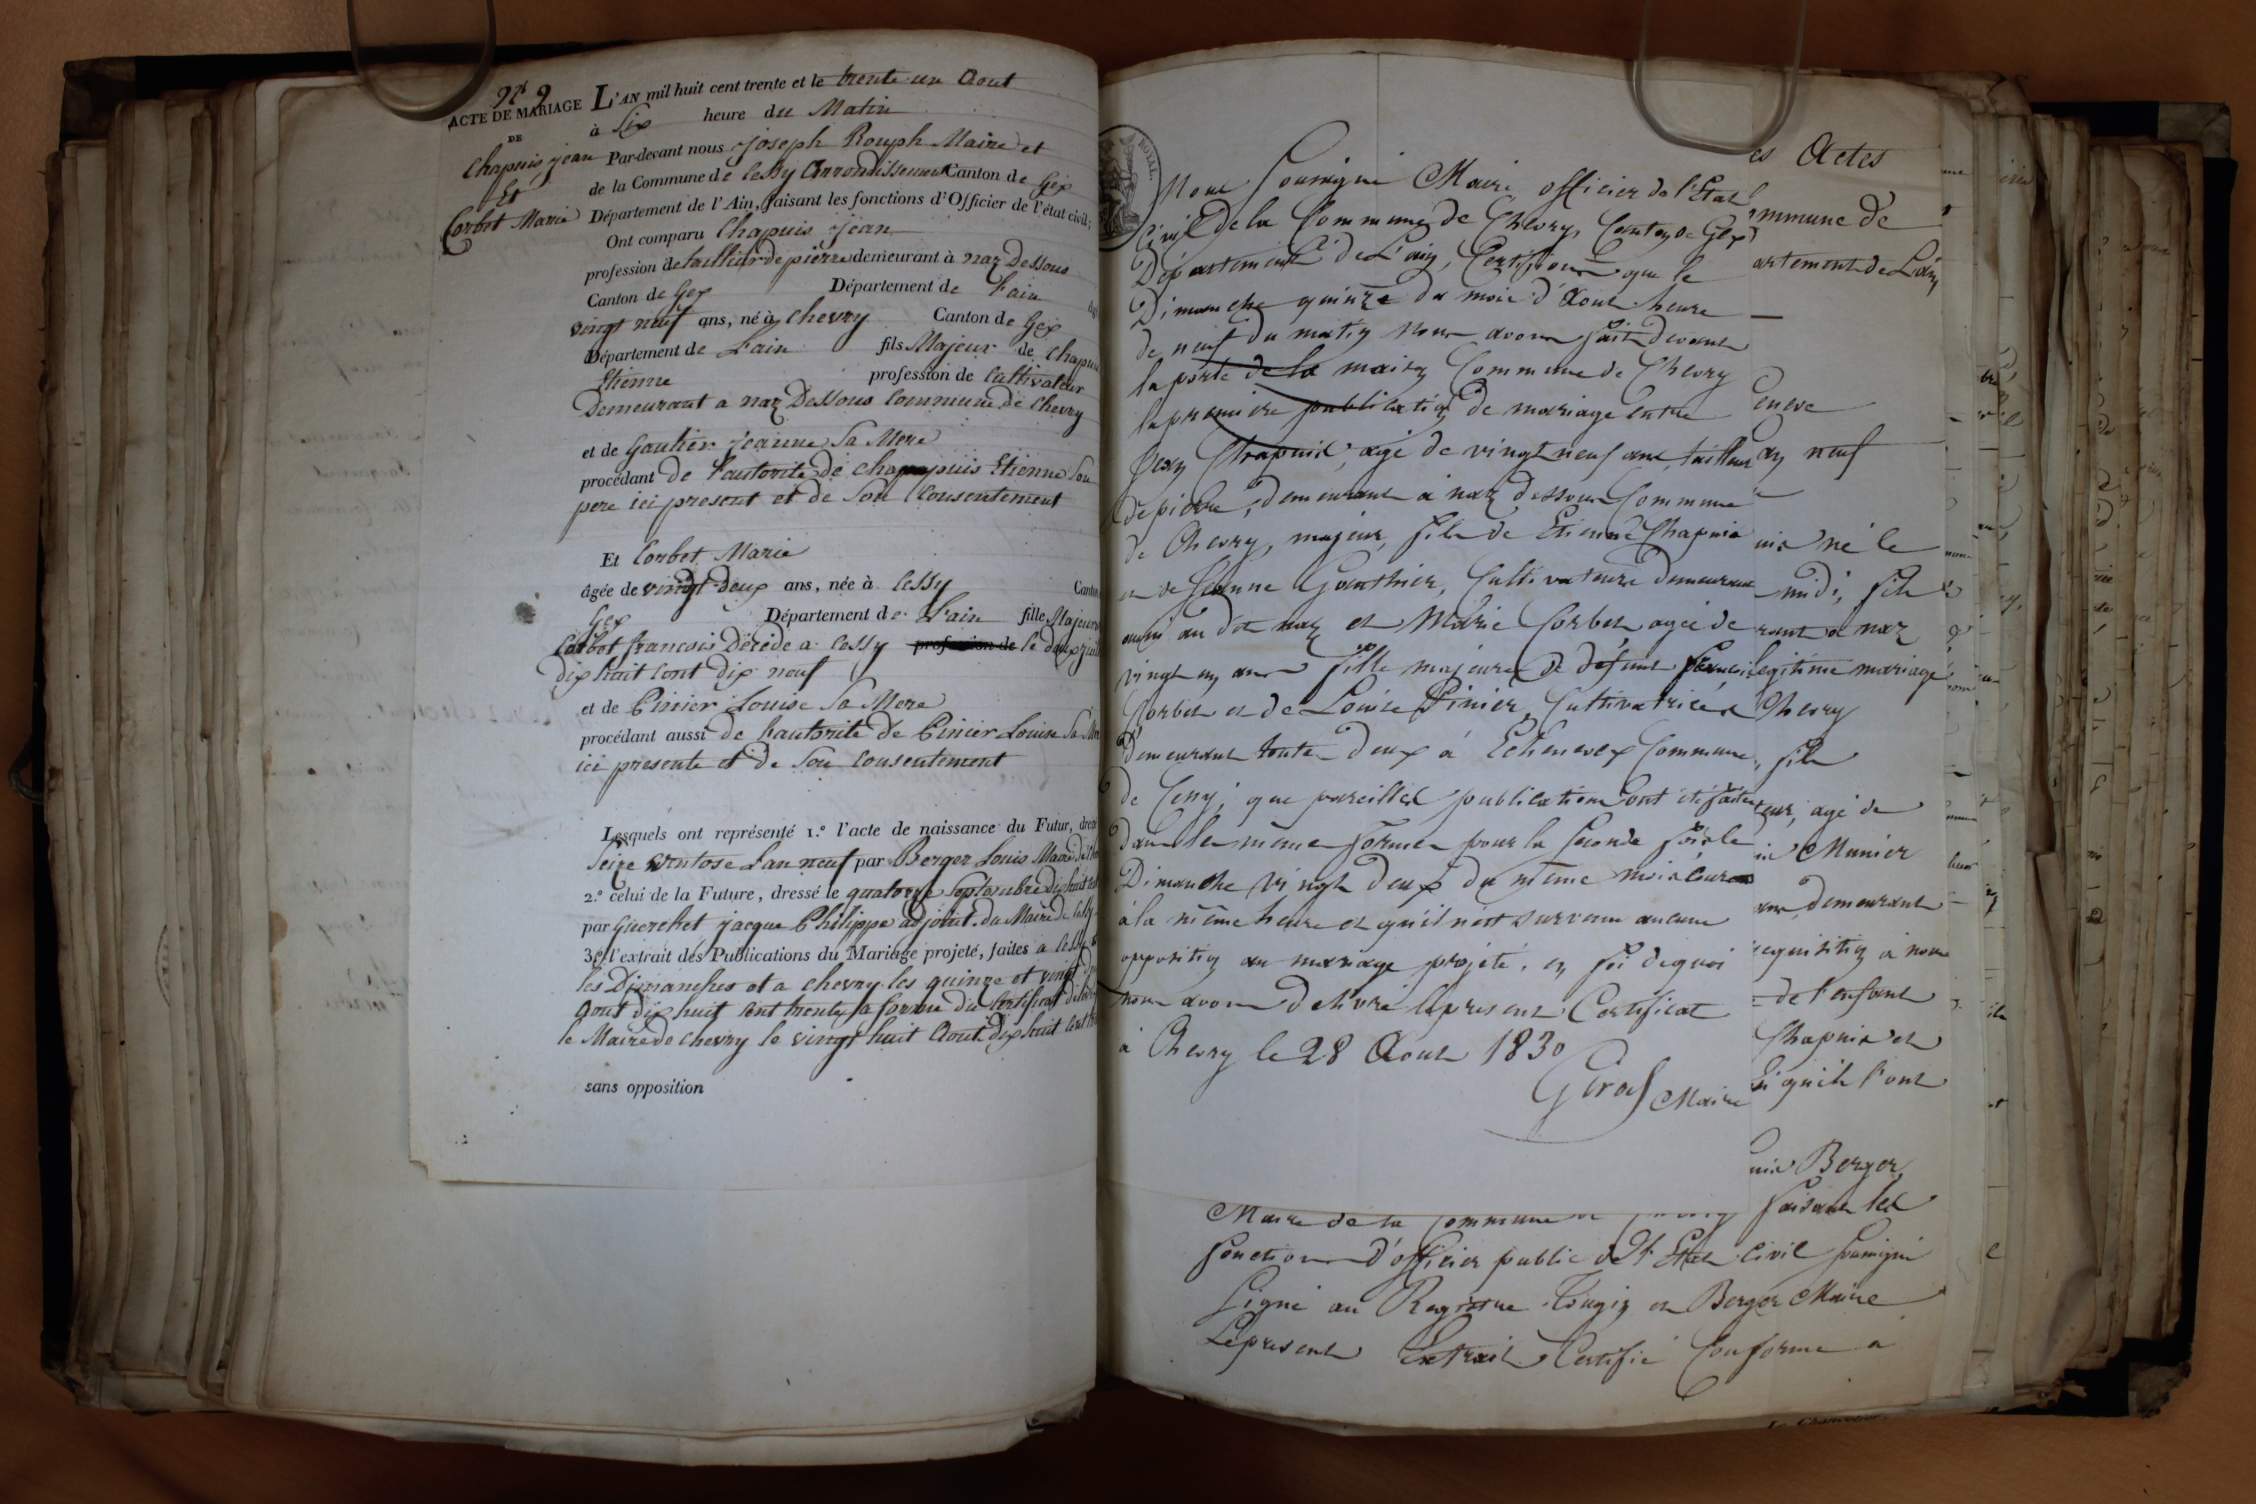 N° 9
ACTE DE MARIAGE
DE
Chapuis jean
Et
Corbet Marie
L'AN mil huit cent trente et le trente un Aout
à Six heure du Matin
Par-devant nous joseph Rouph Maire et
de la Commune de Cessy Arrondissement Canton de Gex
Département de l'Ain, faisant les fonctions d'Officier de l'état civil;
Ont comparu Chapuis jean
profession de tailleur de pierre demeurant à naz Dessous
Canton de Gex Département de l'ain
vingt neuf ans, né à Chevry Canton de Gex
Département de l'ain fils Majeur de Chapuis
Etienne profession de Cultivateur
Demeurant a naz Dessous Commune de Chevry
et de Gautier jeanne Sa Mere
procédant de l'autorité de Chapuis Etienne Son
pere ici present et de Son Consentement
Et Corbet Marie
âgée de vingt-deux ans, née à Cessy Canton
Gex Département de l'ain fille Majeure
Corbet francois Décédé a Cessy profession de le deux
dix huit cent dix neuf
et de Pinier Louise Sa Mere
procédant aussi de l'autorité de Pinier Louise Sa Mere
ici presente et de Son Consentement
Lesquels ont représenté 1.° l'acte de naissance du Futur, dressé
Seize Ventose L'an neuf par Berger Louis Maire de
2.° celui de la Future, dressé le quatorze Septembre dix huit cent
par Guerchet jacque Philippe adjoint du Maire de Cessy
3.° l'extrait des Publications du Mariage projeté, faites a Cessy
les Dimanches et a Chevry les quinze et vingt
Aout dix huit cent trente la forme du Certificat délivré
le Maire de Chevry le vingt huit Aout dix huit cent
sans opposition
ROYAL.
Nous Soussigné Maire, officier de l'Etat
Civil de la Commune de Chevry, Canton de Gex
Département de L'ain, Certifions que le
Dimanche quinze du mois d'Aout heure
de neuf du matin nous avons fait devant
la porte de la maison Commune de Chevry
la premiere publication de mariage entre
Jean Chapuis, agé de vingt neuf ans, tailleur
de pierre, demeurant à naz dessous Commune
de Chevry, majeur, fils de Etienne Chapuis
et de Jeanne Gauthier, Cultivateurs demeurant
aussi au dit naz et Marie Corbet agée de
vingt un ans fille majeure de défunt francois
Corbet et de Louise Pinier, Cultivatrices
Demeurant toute deux à Echenevex Commune
de Cessy; que pareilles publications ont été faites
dans les même formes pour la seconde fois le
Dimanche Vingt deux du même mois courant
à la même heure et qu'il n'est survenu aucune
opposition au mariage projeté. en foi de quoi
nous avons delivré le present Certificat
à Chevry le 28 Aout 1830
Girod Maire
es Actes
mmune de
artement de L'ain
eneve
an neuf
uis né le
midi, fils
rant a naz
legitime mariage
Chevry
, fils
eur, agé de
Munier
ans, demeurant
requisition à nous
de l'enfant
Chapuis et
qu'ils l'ont
uis Berger
Maire de la Commune de Chevry faisant les
fonctions d'officier public de l'Etat civil Soussigné
Signé au Registre et Berger Maire
Le present Extrait Certifié Conforme à